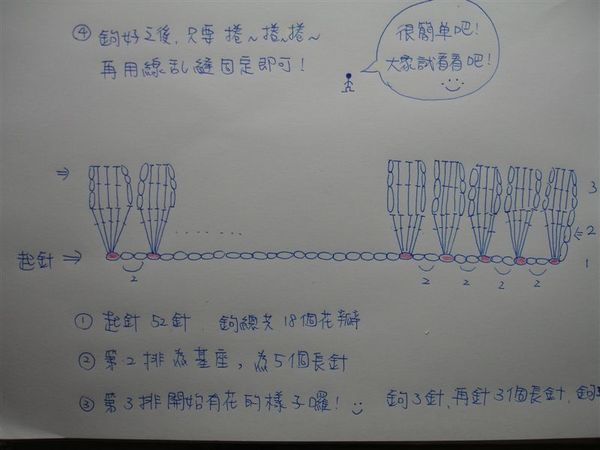 ④ 鉤好之後，只要 捲~捲~捲~
再用線乱縫固定即可！
很簡单吧！
大家試看看吧！
⇒
3
2
起針 ⇒
1
2
2 2 2 2
① 起針 52針 鉤總共 18個花瓣
② 第2排為基座，為5個長針
③ 第3排開始有花的樣子囉！ 鉤3針、再針3個長針、鉤